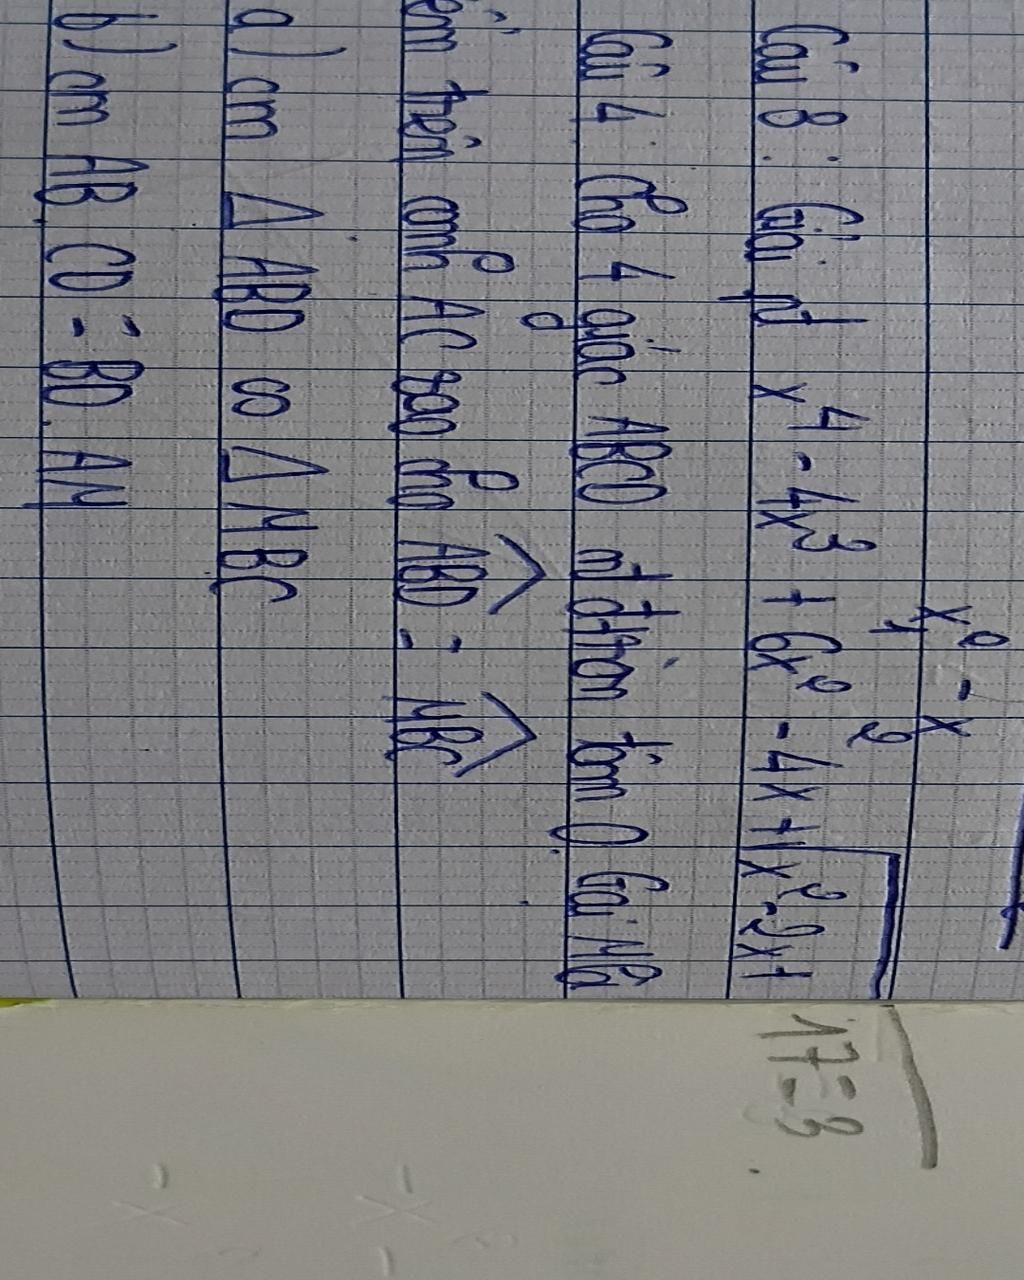 x² - x
Câu 8: Giải pt x⁴ - 4x³ + 6x² - 4x + 1 √x² - 2x + 17 = 3
Câu 4: Cho 4 giác ABCD nt đtròn tâm O. Gọi M là
điểm trên cạnh AC sao cho ABD = MBC
a) cm △ ABD ∽ △ MBC
b) cm AB. CD = BD. AM